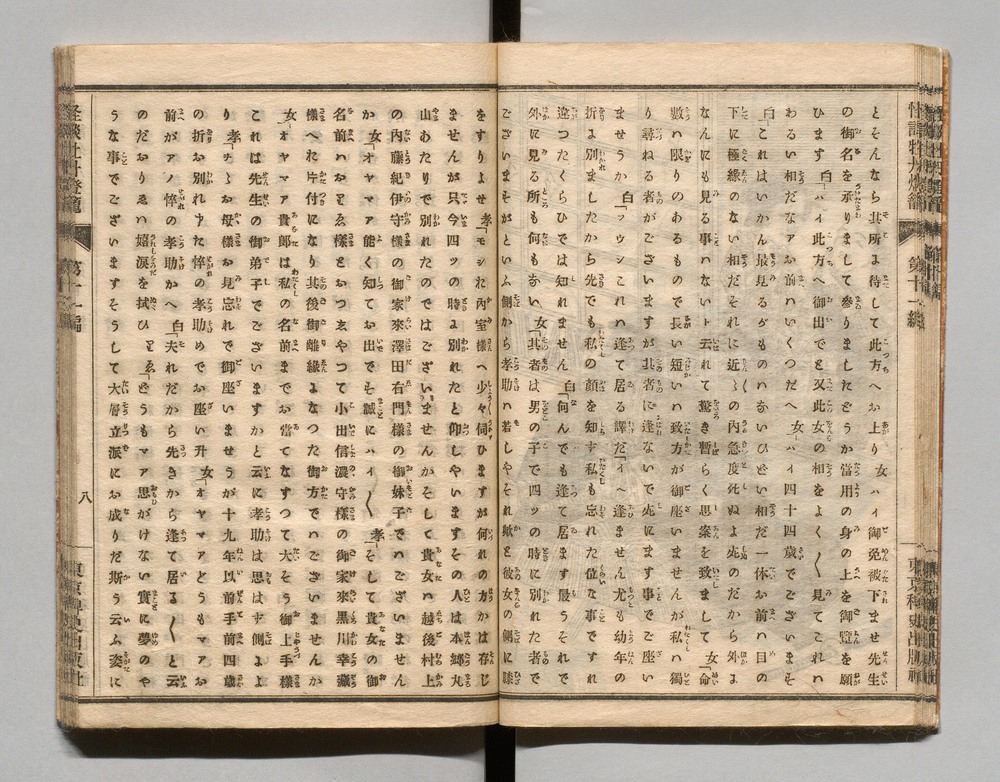 とそんなら其所に待して此方へお上り女ハイ御免被下ませ先生
の御名を承りまして参りましたどうか當用の身の上を御覽を願
ひます白「ハイ此方へ御出でと又此女の相をよく〱見てこれハ
わるい相だなァお前ハいくつだへ女「ハイ四十四歳でございまそ
白「これはいかん最見るがものハないひどい相だ一体お前ハ目の
下に極縁のない相だそれに近々の内急度死ぬよ死のだから外に
なんにも見る事ハないト云れて驚き暫らく思案を致しまして女「命
數ハ限りのあるもので長い短いハ致方が御座いませんが私しハ獨
り尋ねる者がございますが其者に逢ないで死にます事でござい
ませうか白「ウンこれハ逢て居る譯だ「イヘ逢ません尤も幼年の
折に別ましたから先でも私の顔を知す私も忘れた位な事ですれ
違つたくらひでは知れません白「何んでも逢て居ます最うそれで
外に見る所も何もない女「其者は男の子で四ツの時に別れた者で
ございまそがといふ側から孝助ハ若しやそれ歟と彼女の側に膝
をすりよせ孝「モシお内室様へ少々伺ひますが何れの方かは存じ
ませんが只今四ツの時に別れたと仰しやいますその人は本郷丸
山あたりで別れたのではございませんかそして貴女ハ越後村上
の内藤紀伊守様の御家來澤田右門様の御妹子でハございません
か女「オヤマァ能く知てお出でぞ誠にハイ〱孝「そして貴女の御
名前ハおりゑ様とおつしゑやつて小出信濃守様の御家來黒川幸藏
様へお片付になり其後御離縁になつた御方でハございませんか
女「オヤマァ貴郎は私の名前までお當てなすつて大そう御上手様
これは先生の御弟子でございますかと云に孝助は思はず側によ
り孝「ヲヽお母様お見忘れで御座いませうが十九年以前手前四歳
の折お別れ申た悴の孝助めでお座い升女「オヤマァどうもマァお
前がアノ悴の孝助かへ白「夫れだから先きから逢て居る〱と云
のだおりゑハ嬉し涙を拭ひりゑ「どうもマァ思がけない實に夢のや
うな事でございますそうして大層立派にお成りだ斯う云ふ姿に
第十一編
八